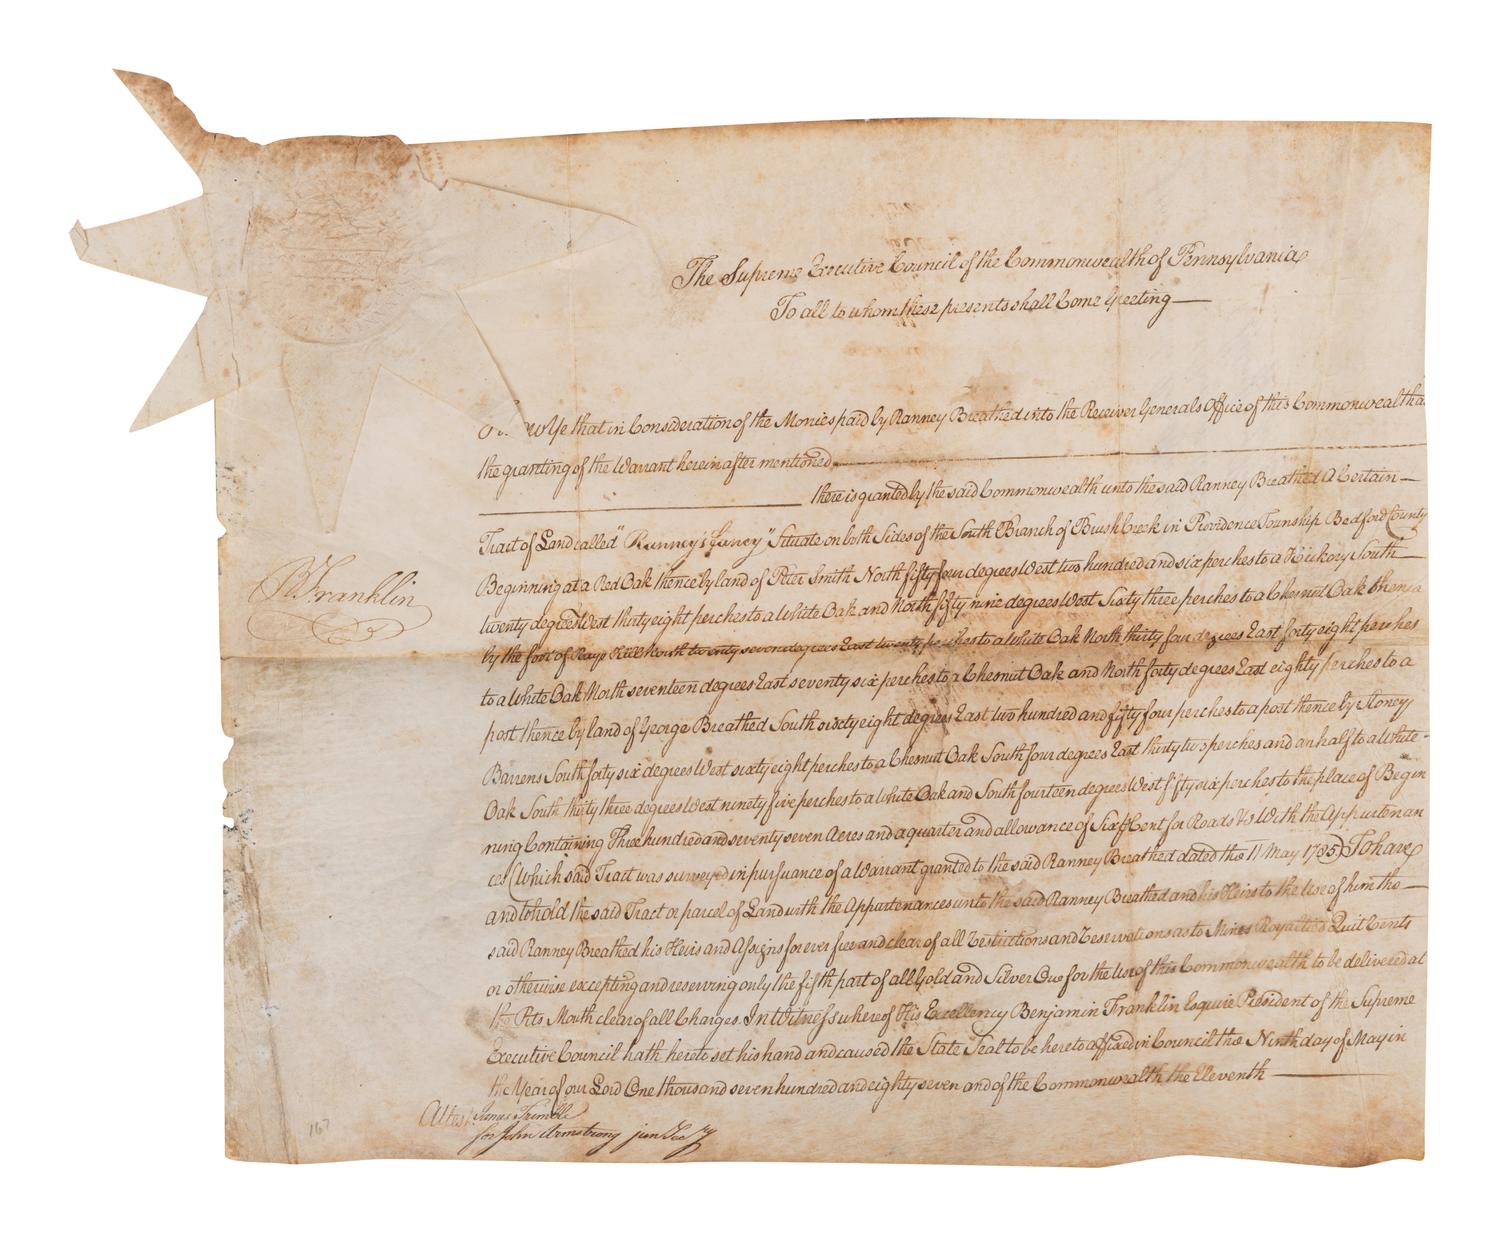 The Supreme Executive Council of the Commonwealth of Pennsylvania
To all to whom these presents shall Come Greeting—
wYe that in Consideration of the Monies paid by Ranney Breathed into the Receiver Generals Office of this Commonwealth a
the granting of the Warrant herein after mentioned
there is granted by the said Commonwealth unto the said Ranney Breathed A Certain—
Tract of Land called "Ranney's Fancy" Situate on both Sides of the South Branch of Brush Creek in Providence Township Bedford County
Beginning at a Red Oak thence by land of Peter Smith North fifty four degrees West two hundred and six perches to a Hickory South—
twenty degrees West thirty eight perches to a White Oak and North fifty nine degrees West Sixty three perches to a Chesnut Oak thence
by the foot of Rays Hill North twenty seven degrees East twenty perches to a White Oak North thirty four degrees East forty eight perches
to a White Oak North seventeen degrees East seventy six perches to a Chesnut Oak and North forty degrees East eighty perches to a
post thence by land of George Breathed South sixty eight degrees East two hundred and fifty four perches to a post thence by Stoney
Barrens South forty six degrees West sixty eight perches to a Chesnut Oak South four degrees East thirty two perches and an half to a White-
Oak South thirty three degrees West ninety five perches to a White Oak and South fourteen degrees West fifty six perches to the place of Begin
ning Containing Three hundred and seventy seven Acres and a quarter and allowance of Six ⅌ Cent for Roads &c With the Appurtenan
ces (Which said Tract was surveyed in pursuance of a Warrant granted to the said Ranney Breathed dated the 11 May 1785) To have
and to hold the said Tract or parcel of Land with the Appurtenances unto the said Ranney Breathed and his Heirs to the Use of him the—
said Ranney Breathed his Heirs and Assigns for ever free and clear of all Restrictions and Reservations as to Mines Royalties Quit Rents
or otherwise excepting and reserving only the fifth part of all Gold and Silver Ore for the use of this Commonwealth to be delivered at
the Pits Mouth clear of all Charges. In Witness whereof His Excellency Benjamin Franklin Esquire President of the Supreme
Executive Council hath hereto set his hand and caused the State Seal to be hereto affixed in Council the Ninth day of May in
the Year of our Lord One thousand seven hundred and eighty seven and of the Commonwealth the Eleventh—
B Franklin
Attest James Trimble
for John Armstrong jun Secy
167